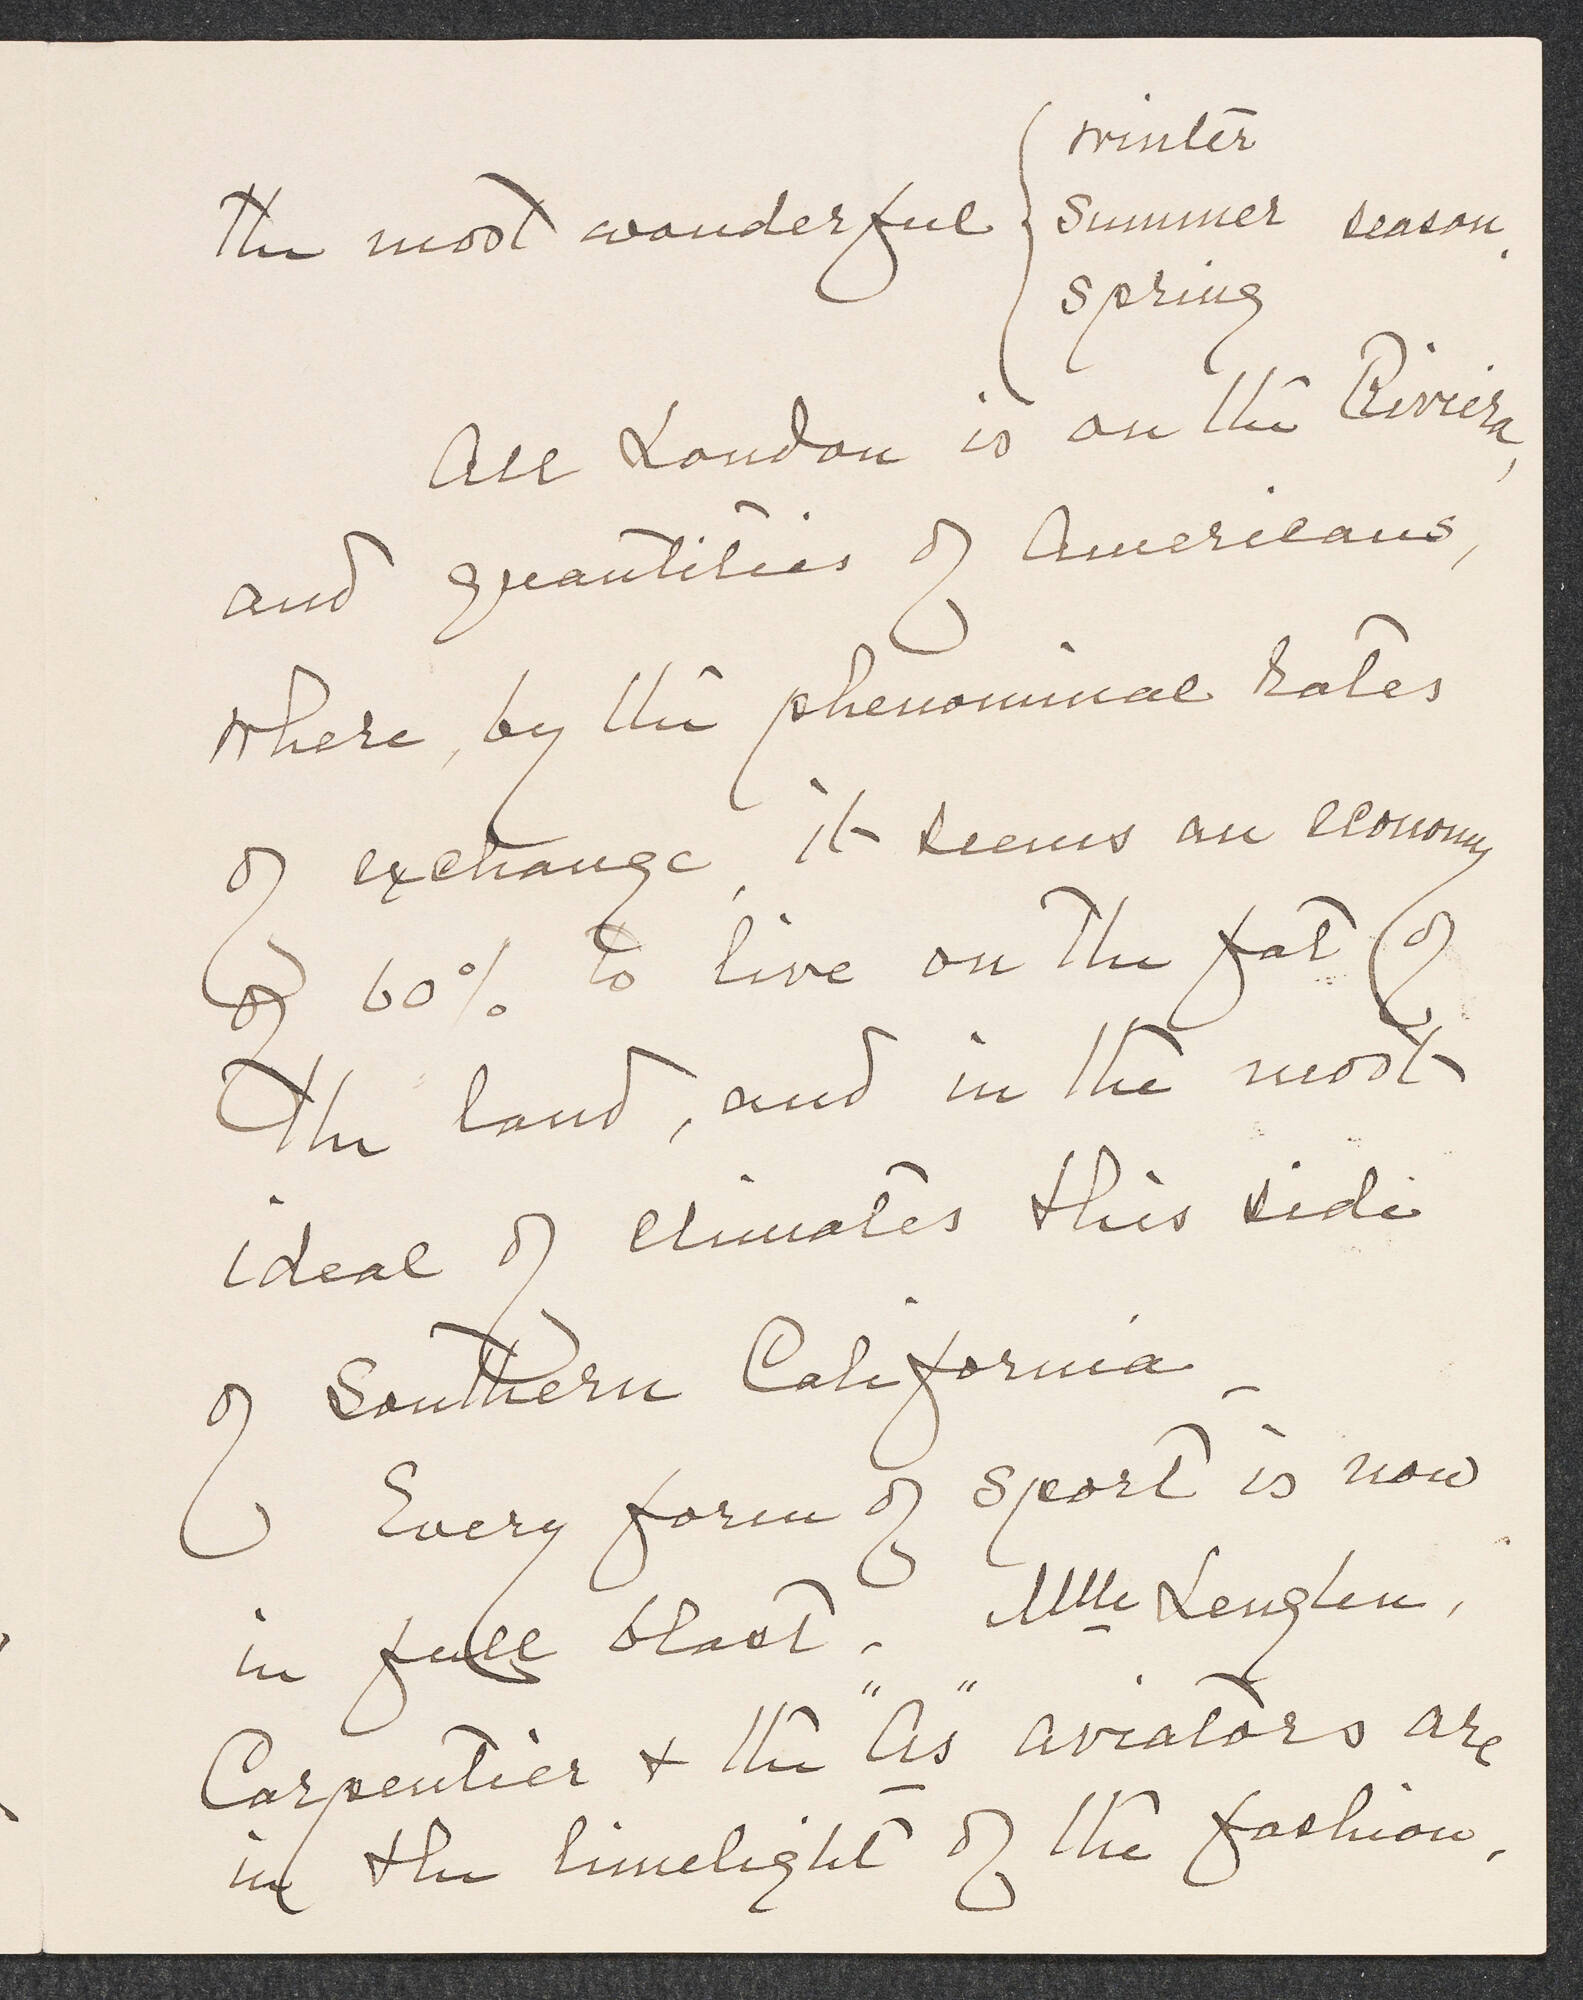 winter
The most wonderful { summer season.
spring
All London is on the Riviera,
and quantities of Americans,
where, by the phenominal rates
of exchange, it seems an economy
of 60% to live on the fat of
the land, and in the most
ideal of climates this side
of Southern California –
Every form of sport is now
in full blast. Mlle Lenglen,
Carpentier + the "As" aviators are
in the limelight of the fashion.